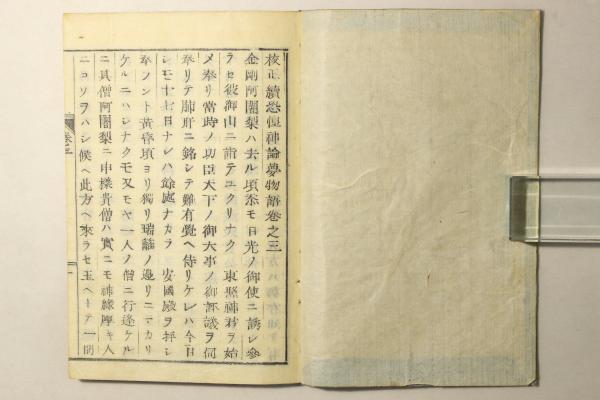 校正續恐惶神論夢物語卷之三
金剛阿闍梨ハ去ル頃忝モ日光ノ御使ニ誘レ參
ラセ彼御山ニ詣テユクリナク東照神君ヲ始
メ奉リ當時ノ功臣天下ノ御大事ノ御評議ヲ伺
奉リテ肺肝ニ銘シテ難有覺ヘ侍リケレハ今日
シモ十七日ナレハ餘處ナカラ安國殿ヲ拝シ
奉ラント黃昏頃ヨリ獨リ瑞籬ノ邊リニマカリ
ケルニハシナクモ又モヤ一人ノ僧ニ行逢ケル
ニ其僧阿闍梨ニ申樣貴僧ハ實ニモ神緣厚キ人
ニコソヲハシ候ヘ此方ヘ來ラセ玉ヘトテ一間
卷之三